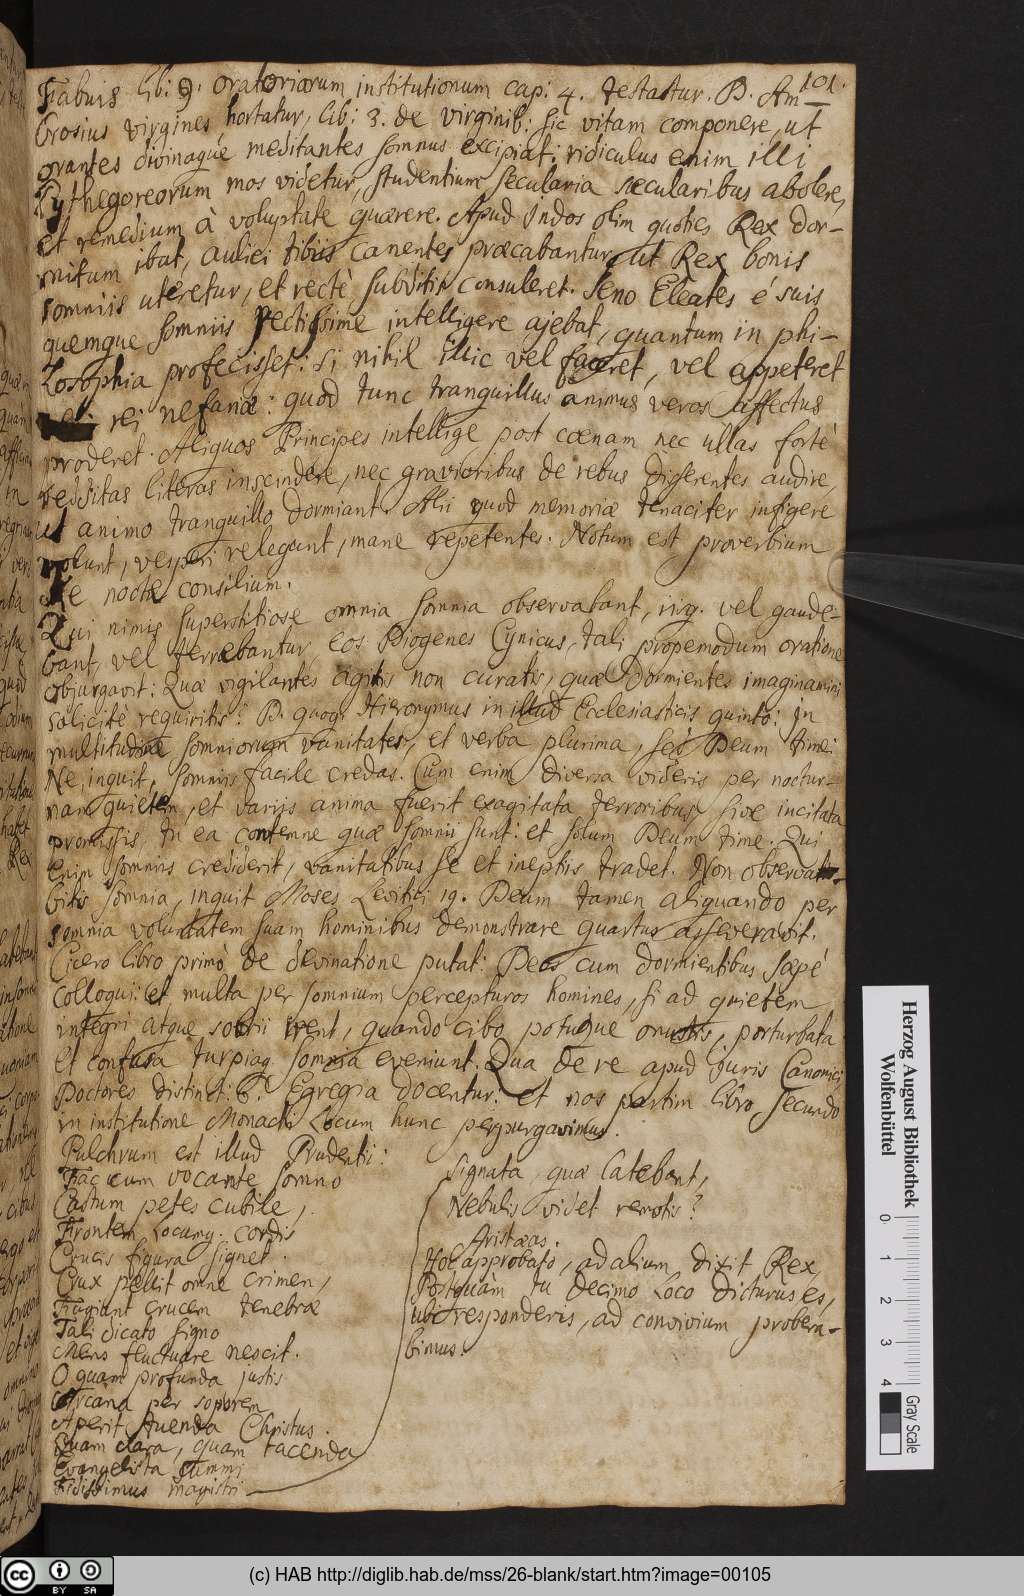 101.
Fabius lib: 9. oratoriarum institutionum cap: 4. testatur. D. Am-
brosius virgines hortatur, lib: 3. de virginib: sic vitam componere, ut
orantes divinaque meditantes somnus excipiat: ridiculus enim illi
Pythegoreorum mos videtur, studentium secularia sæcularibus abolere,
et remedium à voluptate quærere. Apud Indos olim quoties Rex dor-
mitum ibat, aulici tibiis canentes præcabantur, ut Rex bonis
somniis uteretur, et rectè subditis consuleret. Seno Eleates é suis
quemque somniis rectissime intelligere ajebat, quantum in phi-
losophia profecisset: si nihil illic vel faceret, vel appeteret
rei nefariæ: quod tunc tranquillus animus veros affectus
proderet. Aliquos Principes intellige post cœnam nec ullas fortè
redditas literas inscindere, nec gravioribus de rebus disserentes audire,
ut animo tranquillo dormiant. Alii quod memoriæ tenaciter infigere
volunt, vesperi relegunt, mane repetentes. Notum est proverbium
De nocte consilium.
Qui nimis superstitiose omnia somnia observabant, iisq. vel gaude-
bant, vel terrebantur, eos Diogenes Cynicus, tali propemodum oratione
objurgavit: Quæ vigilantes agitis non curatis, quæ dormientes imaginamini
solicitè requiritis? D. quoq. Hieronymus in illud Ecclesiasticis quinto: In
multitudine somniorum vanitates, et verba plurima, sed Deum time:
Ne, inquit, somniis facile credas. Cum enim diversa videris per noctur-
nam quietem, et variis anima fuerit exagitata terroribus, sive incitata
promissis, tu ea contemne quæ somnii sunt: et solum Deum time. Qui
Enim somniis crediderit, vanitatibus se et ineptiis tradet. Non observa-
bitis somnia, inquit Moses Levitici 19. Deum tamen aliquando per
somnia voluntatem suam hominibus demonstrare quartus asseveravit.
Cicero libro primò de divinatione putat: Deos cum dormientibus sæpé
colloqui: et multa per somnium percepturos homines, si ad quietem
integri atque sobrii irent, quando cibo potuque onustis, perturbata
et confusa turpiaq. somnia eveniunt. Qua de re apud Juris Canonici
Doctores distinct: 6. Egregia docentur: et nos partim libro secundo
in institutione Monachi locum hunc perpurgavimus.
Pulchrum est illud Prudentii:
Fac cum vocante somno
Castum petes cubile,
Frontem locumq. cordis
Crucis figura signet.
Crux pellit omne crimen,
Fugiunt crucem tenebræ
Tali dicato signo
Mens fluctuare nescit.
O quam profunda justis
Arcana per soporem
Aperit tuenda Christus.
Quam clara, quam tacenda
Evangelista summi
Fidissimus magistri
Signata, quæ latebant,
Nebulis videt remotis?
Aristæas.
Hoc approbato, ad alium dixit Rex,
Postquàm tu decimo loco dicturus es,
ubi responderis, ad convivium properа-
bimus.
Herzog August Bibliothek
Wolfenbüttel
0 1 2 3 4
Gray Scale
cc BY SA
(c) HAB http://diglib.hab.de/mss/26-blank/start.htm?image=00105